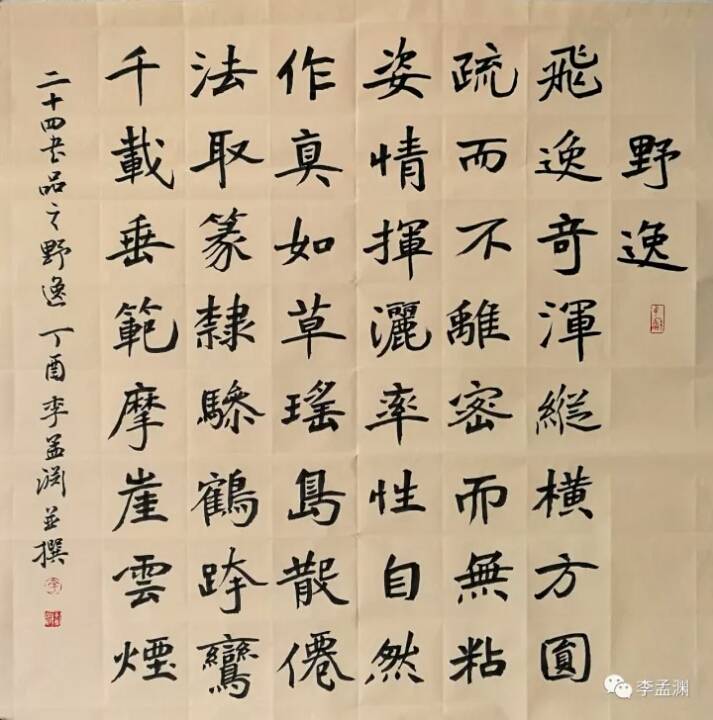 野逸
飛逸奇渾縱橫方圓
疏而不離密而無粘
姿情揮灑率性自然
作真如草瑤島散僊
法取篆隸驂鶴跨鸞
千載垂範摩崖雲煙
二十四書品之野逸 丁酉李孟渊並撰
李孟渊